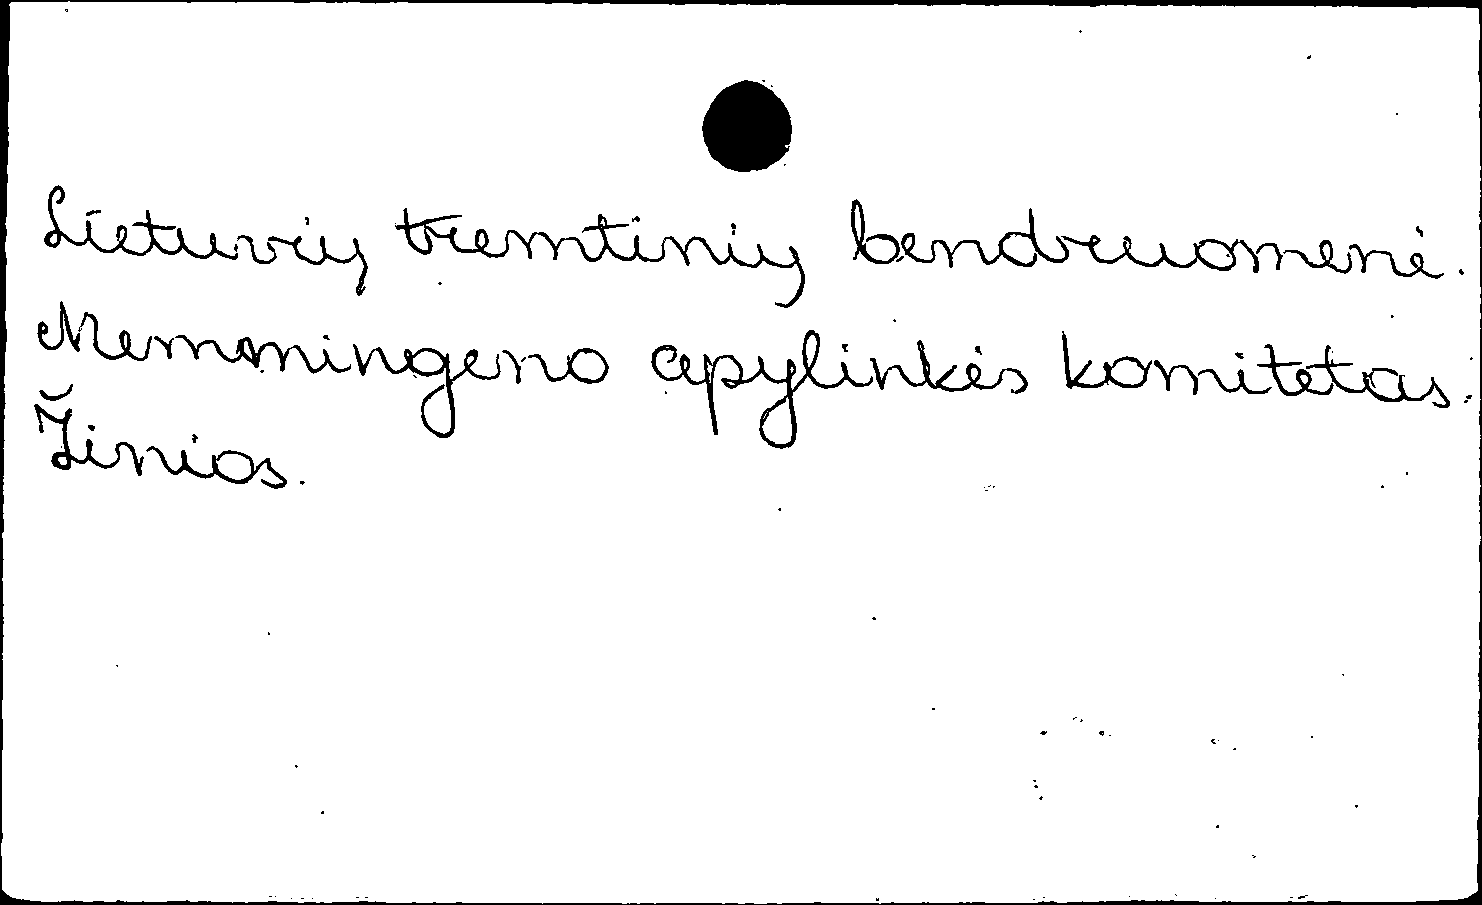 Lietuvių tremtinių bendruomenė.
Memmingeno apylinkės komitetas.
Žinios.